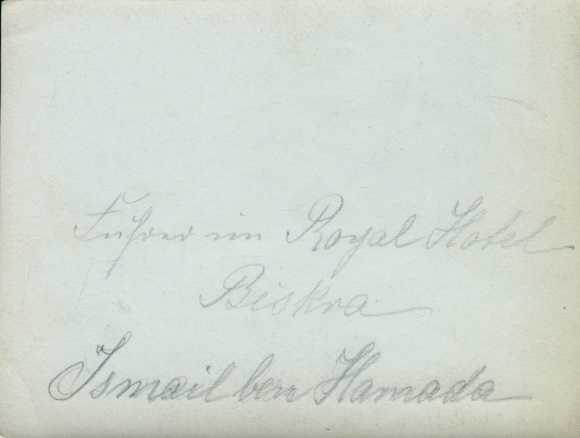 Führer im Royal Hotel
Biskra
Ismail ben Hamada